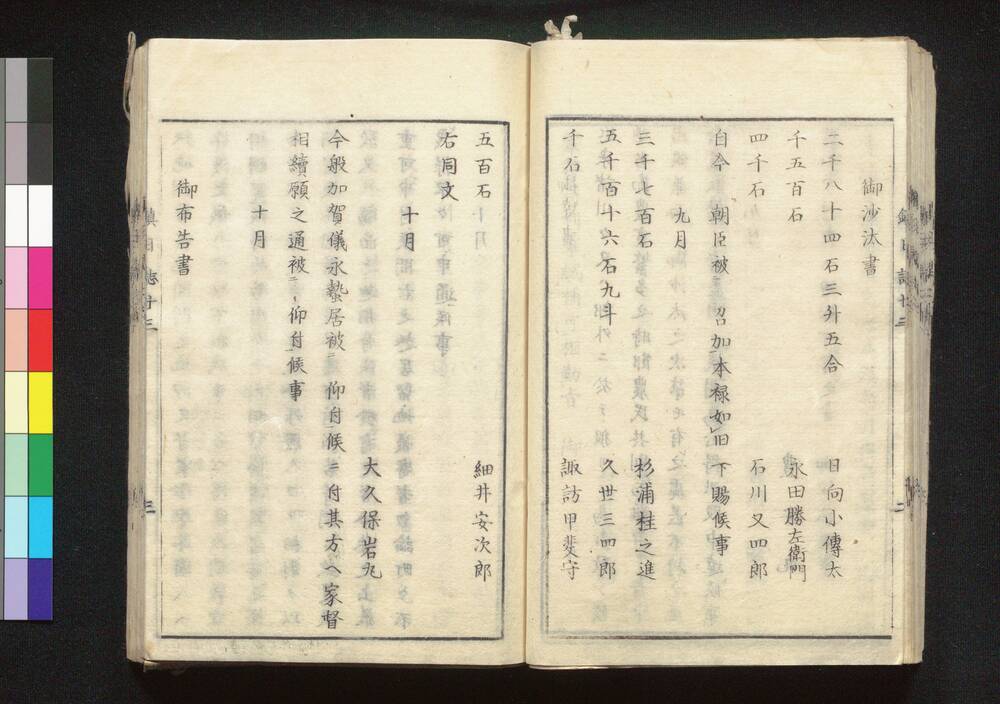 御沙汰書
二千八十四石三升五合 日向小傳太
千五百石 永田勝左衛門
四千石 石川又四郎
自今 朝臣被 召加本禄如旧下賜候事
九月
三千七百石 杉浦桂之進
五千百十六石九斗 久世三四郎
千石 諏訪甲斐守
五百石 細井安次郎
右同文
十月
大久保岩丸
今般加賀儀永蟄居被 仰付候ニ付其方へ家督
相續願之通被 仰付候事
十月
御布告書